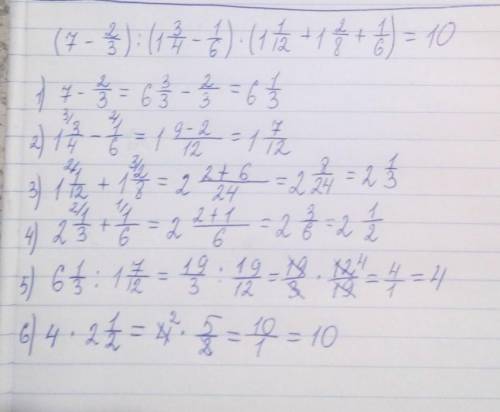 (7 - 2/3) : (1 3/4 - 1/6) · (1 1/12 + 1 2/8 + 1/6) = 10
1) 7 - 2/3 = 6 3/3 - 2/3 = 6 1/3
2) 1 ³⁾3/4 - ²⁾1/6 = 1 (9-2)/12 = 1 7/12
3) 1 ²⁾1/12 + 1 ³⁾2/8 = 2 (2+6)/24 = 2 8/24 = 2 1/3
4) 2 ²⁾1/3 + ¹⁾1/6 = 2 (2+1)/6 = 2 3/6 = 2 1/2
5) 6 1/3 : 1 7/12 = 19/3 : 19/12 = 19/3 · 12⁴/19 = 4/1 = 4
6) 4 · 2 1/2 = 4² · 5/2 = 10/1 = 10